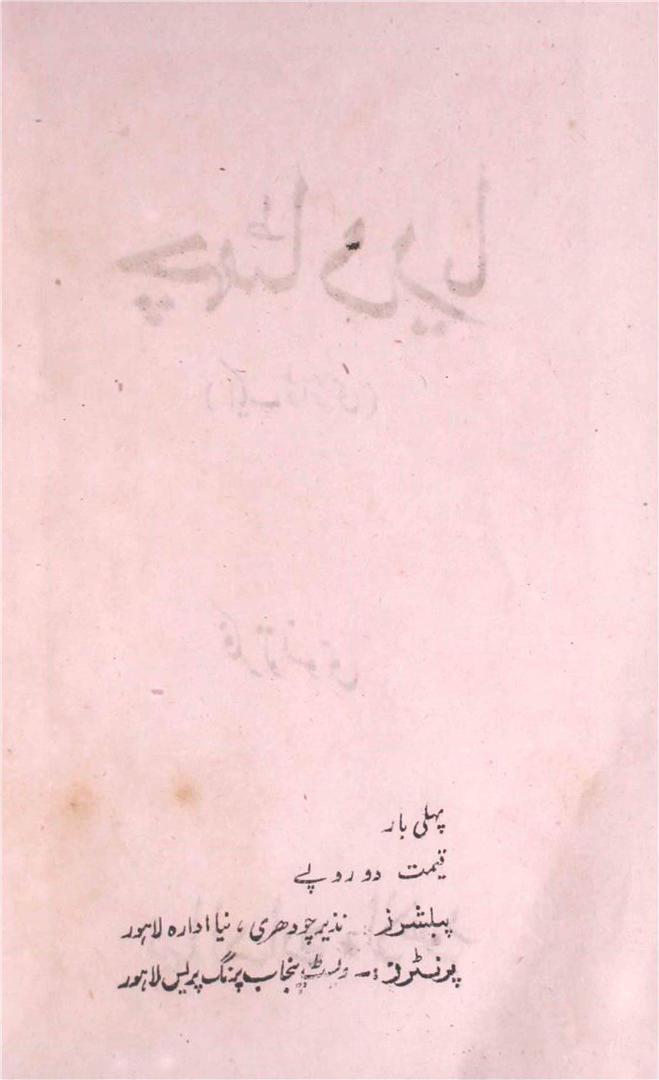 پہلی بار
قیمت دو روپے
پبلشرز: نذیر چودھری، نیا ادارہ لاہور
پرنٹرز:۔ ویسٹ پنجاب پرنٹنگ پریس لاہور